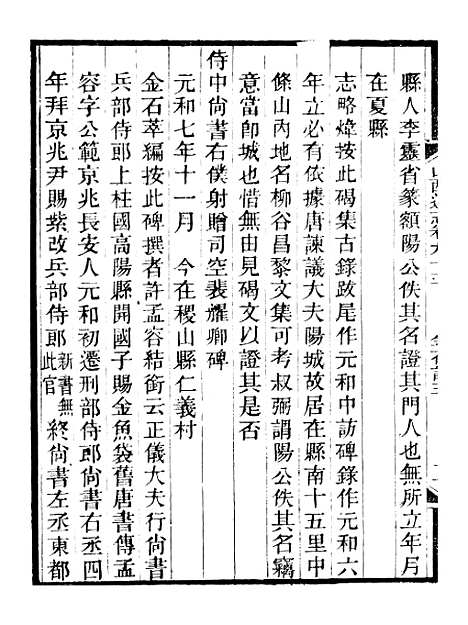 縣人李靈省篆額陽公佚其名證其門人也無所立年月
在夏縣
志略煒按此碣集古錄跋尾作元和中訪碑錄作元和六
年立必有依據唐諫議大夫陽城故居在縣南十五里中
條山內地名柳谷昌黎文集可考叔弼謂陽公佚其名竊
意當卽城也惜無由見碣文以證其是否
侍中尙書右僕射贈司空裴耀卿碑
元和七年十一月　今在稷山縣仁義村
金石萃編按此碑撰者許孟容結銜云正儀大夫行尙書
兵部侍郎上柱國高陽縣開國子賜金魚袋舊唐書傳孟
容字公範京兆長安人元和初遷刑部侍郎尙書右丞四
年拜京兆尹賜紫改兵部侍郎新書無此官終尙書左丞東都